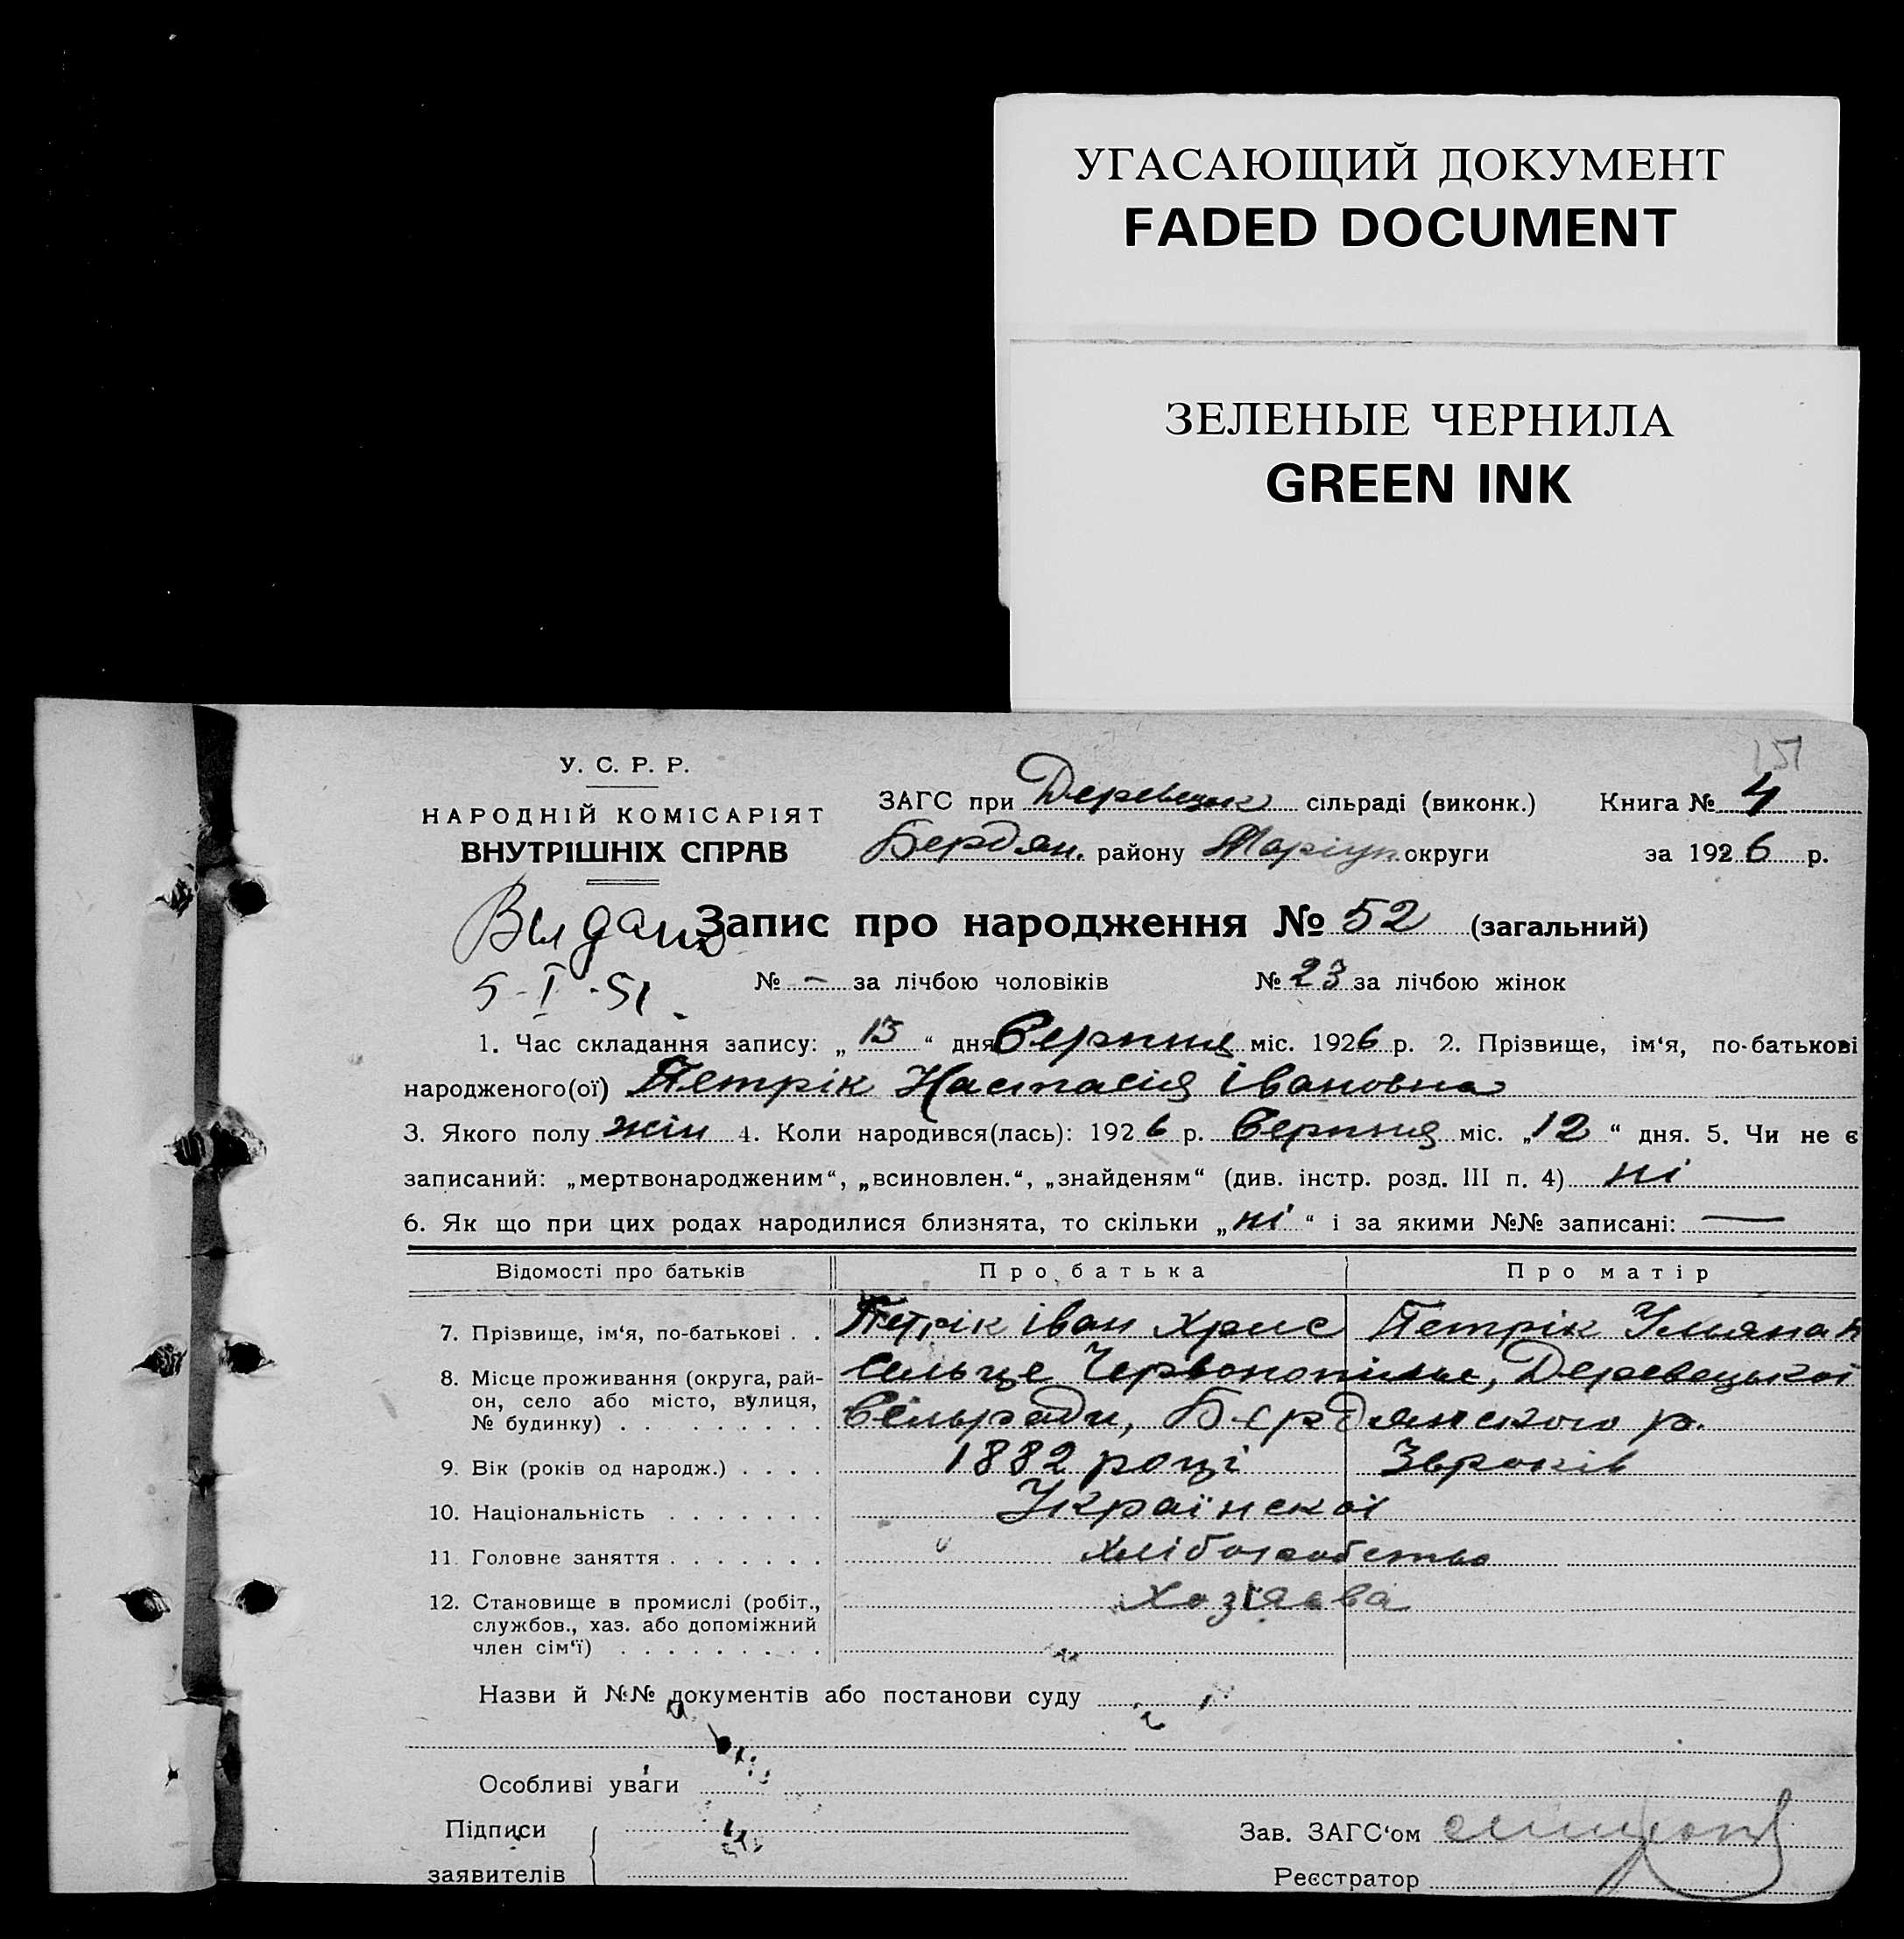 УГАСАЮЩИЙ ДОКУМЕНТ
FADED DOCUMENT
ЗЕЛЕНЫЕ ЧЕРНИЛА
GREEN INK
151
У. С. Р. Р.
НАРОДНІЙ КОМІСАРІЯТ
ВНУТРІШНІХ СПРАВ
ЗАГС при Деревецьк сільраді (виконк.) Книга № 4
Бердян. району Маріуп. округи за 1926 р.
Выдано
5-I-51.
Запис про народження № 52 (загальний)
№ - за лічбою чоловіків № 23 за лічбою жінок
1. Час складання запису: „ 13 “ дня Серпня міс. 1926 р. 2. Прізвище, ім‘я, по-батькові
народженого(ої) Петрік Настасія Івановна
3. Якого полу жін 4. Коли народився(лась): 1926 р. Серпня міс. „12“ дня. 5. Чи не є
записаний: „мертвонародженим“, „всиновлен.“, „знайденям“ (див. інстр. розд. III п. 4) ні
6. Як що при цих родах народилися близнята, то скільки „ні“ і за якими №№ записані: —
Відомості про батьків Про батька Про матір
7. Прізвище, ім‘я, по-батькові . . Петрік Іван Хрис Петрік Ульяна
8. Місце проживання (округа, рай-
он, село або місто, вулиця,
№ будинку) . . . . . . . . .
сельце Червонопілье, Деревецької
Сільради, Бердянского р.
9. Вік (років од народж.) . . . . 1882 році 36 років
10. Національність . . . . . . . Українскої
11. Головне заняття . . . . . . . Хліборобство
12. Становище в промислі (робіт.,
службов., хаз. або допоміжний
член сім‘ї) . . . . . . . . .
Хозяєва
Назви й №№ документів або постанови суду
Особливі уваги
Підписи
заявителів
Зав. ЗАГС‘ом
Реєстратор